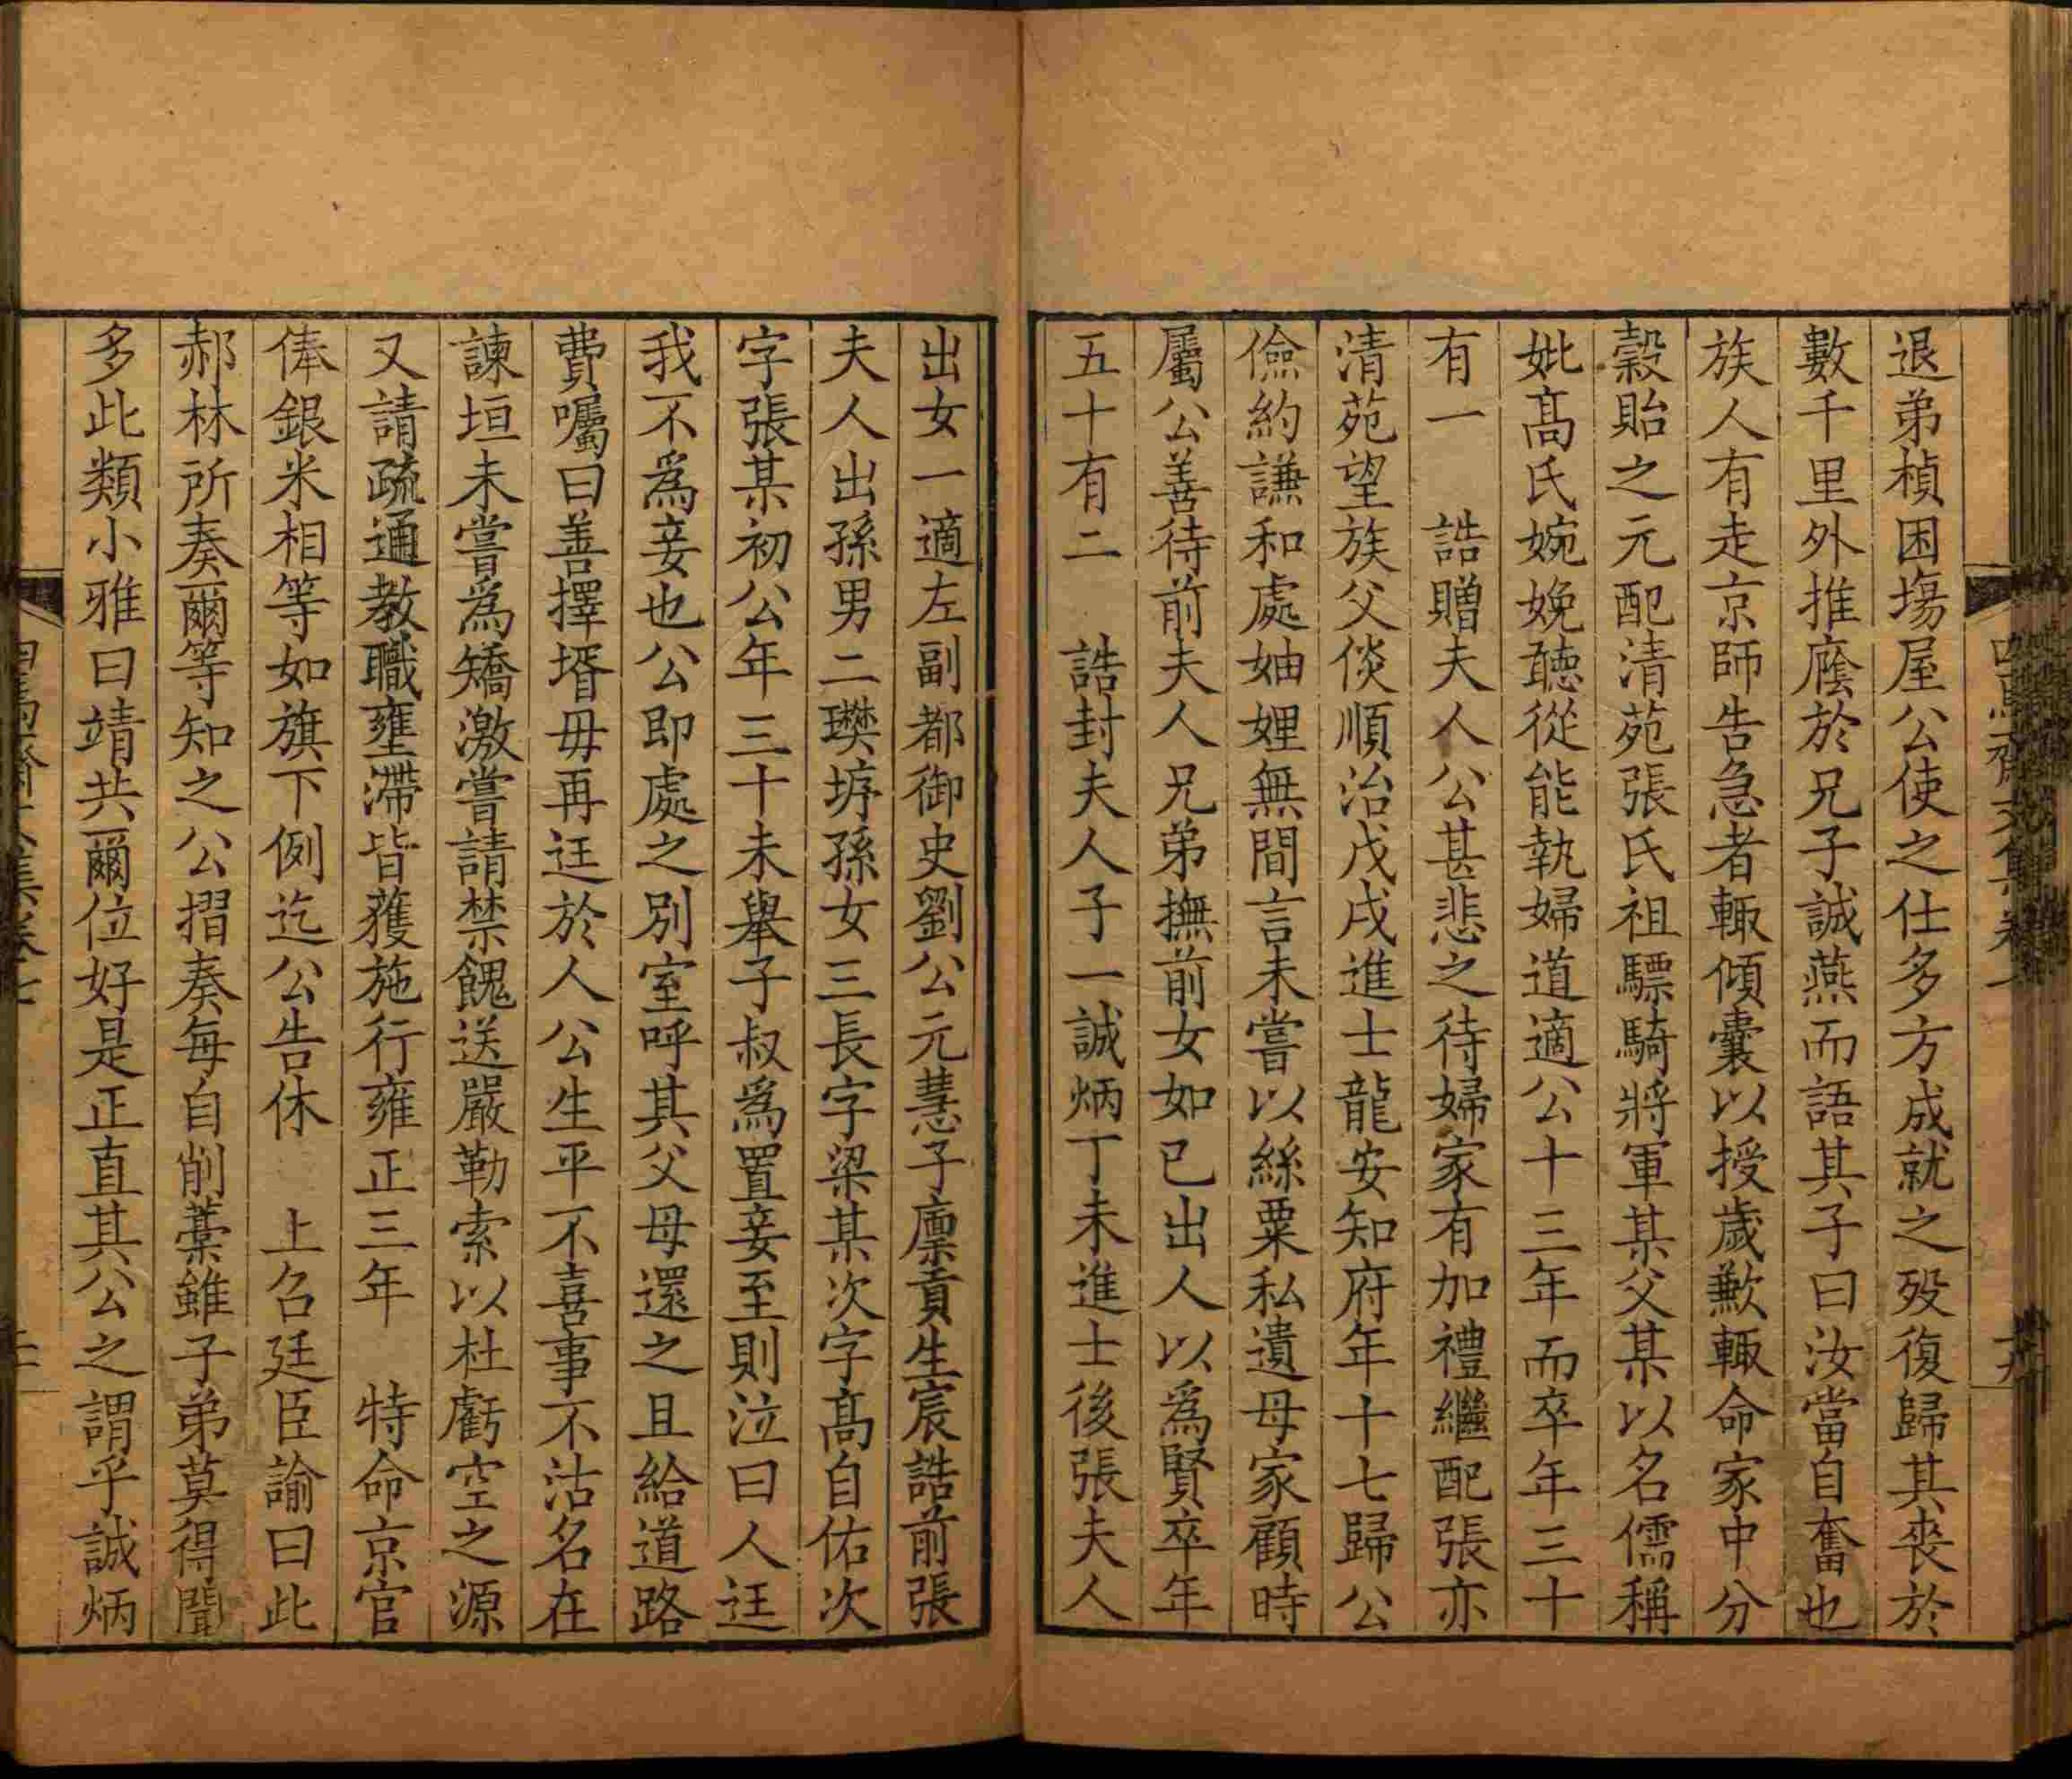 退弟楨困場屋公使之仕多方成就之歿復歸其喪於
數千里外推廕於兄子誠燕而語其子曰汝當自奮也
族人有走京師告急者輒傾囊以授歲歉輒命家中分
穀貽之元配清苑張氏祖驃騎將軍某父某以名儒稱
妣高氏婉娩聽從能執婦道適公十三年而卒年三十
有一　誥贈夫人公甚悲之待婦家有加禮繼配張亦
清苑望族父倓順治戊戌進士龍安知府年十七歸公
儉約謙和處妯娌無間言未嘗以絲粟私遺母家顧時
屬公善待前夫人兄弟撫前女如已出人以爲賢卒年
五十有二　誥封夫人子一誠炳丁未進士後張夫人
出女一適左副都御史劉公元慧子廪貢生宸誥前張
夫人出孫男二璴垿孫女三長字梁某次字高自佑次
字張某初公年三十未舉子叔爲置妾至則泣曰人迋
我不爲妾也公即處之別室呼其父母還之且給道路
費囑曰善擇壻毋再迋於人公生平不喜事不沽名在
諫垣未嘗爲矯激嘗請禁餽送嚴勒索以杜虧空之源
又請疏通教職壅滯皆獲施行雍正三年　特命京官
俸銀米相等如旗下例迄公告休　上召廷臣諭曰此
郝林所奏爾等知之公摺奏每自削藁雖子弟莫得聞
多此類小雅曰靖共爾位好是正直其公之謂乎誠炳